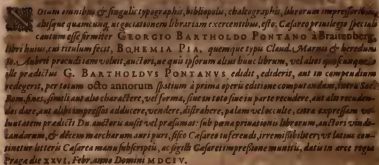 Notum omnibus & singulis typographis, bibliopolis, chalcographis, librorum impressoribus,
aliisque quamcunque negociationem librariam exercentibus, esto: Casareo privilegio speciali
cautum esse firmiter GEORGIO BARTHOLDO PONTANO à Braitenberg,
libri huius, cui titulus fecit, BOHEMIA PIA, quemque typis Claud. Marnii & heredum
Aubrii procudi tam voluit, auctori, ne quis ipsorum alius hunc librum, vel alios quoscunque
ille prædictus G. BARTHOLDUS PONTANUS edidit, ediderit, aut in compendium
redegerit, per totum octo annorum spatium à prima operis editione computandum, intra Sac.
Rom. fines, simili aut alio charactere, vel forma, sive in toto sive in parte recudere, aut alio recuden-
dos dare, aut alibi impressos adducere, vendere, distrahere, palam vel occulte, citra
buntatem prædicti Du auctoris ausit vel præsumat: sub pœna privationis librorum, auctori
dandorum, & decem marcharum auri puri, fisco Casareo inferendi, irremissibiliter: ut latius con-
tinetur litteris Casarea manu subscriptis, ac sigilli Casarei impressione munitis, datis in arce regia
Praga die XXVI. Febr. anno Domini MDCIV.